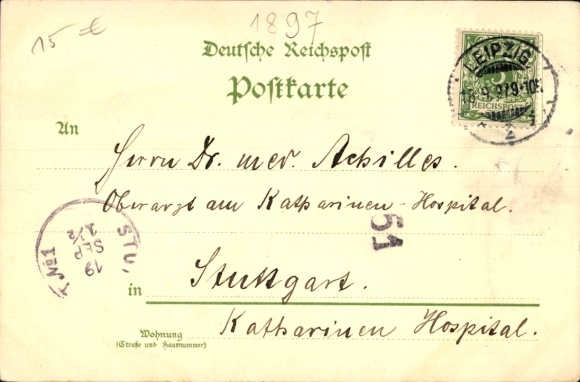 15 €
1897
Deutsche Reichspost
Postkarte
LEIPZIG
18.9.97 9-10
1
2
5
REICHSPOST
An
Herrn Dr. med. Achilles.
Oberarzt am Katharinen-Hospital.
51
STU
No 1
19
SEP
in Stuttgart.
Wohnung
(Straße und Hausnummer)
Katharinen Hospital.